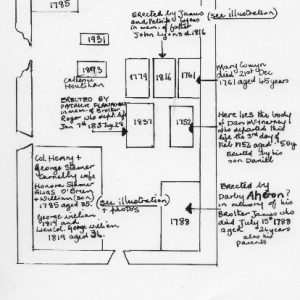 1785
Erected by James
and Patrick Lyons
in mem of father
John Lyons d 1816
(see illustration)
1931
1893
Catherine
Houlihan
1779
1816
1761
Mary Comyn
died 21st Dec
1761 aged 45 years
ERECTED BY
PATRICK
in mem of Brother
Roger who dept life
Jan 7th 1837 by
1837
1752
Here lies the body
of Dan McInerney
who departed this
life the 3rd day of
Feb 1752 aged 50y
Erected by his
son Daniel
Col. Henry +
George Stamer
Carnelly Wife
Honora Stamer
alias O'Brien
+ William (son)
1785 aged 35.
George William
1819 and
Lieu Col. George William
1819 aged 36.
(see illustration)
+ photos
1788
Erected by
Darby Aheron?
in memory of his
Brother James who
died July 15th 1788
aged 26 years
also his
parents